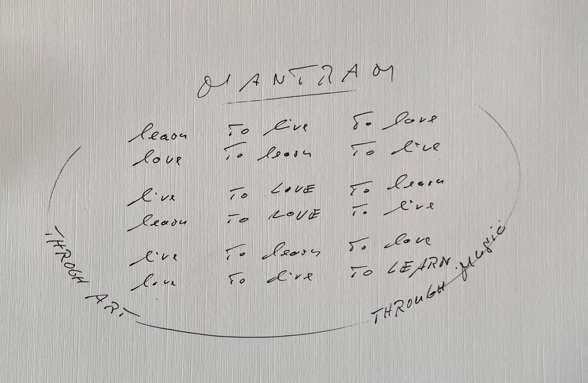 MANTRAM
learn To live To love
love To learn To live
live To LOVE To learn
learn To LOVE To live
live To learn To love
love To live To LEARN
THROGH ART
THROUGH music